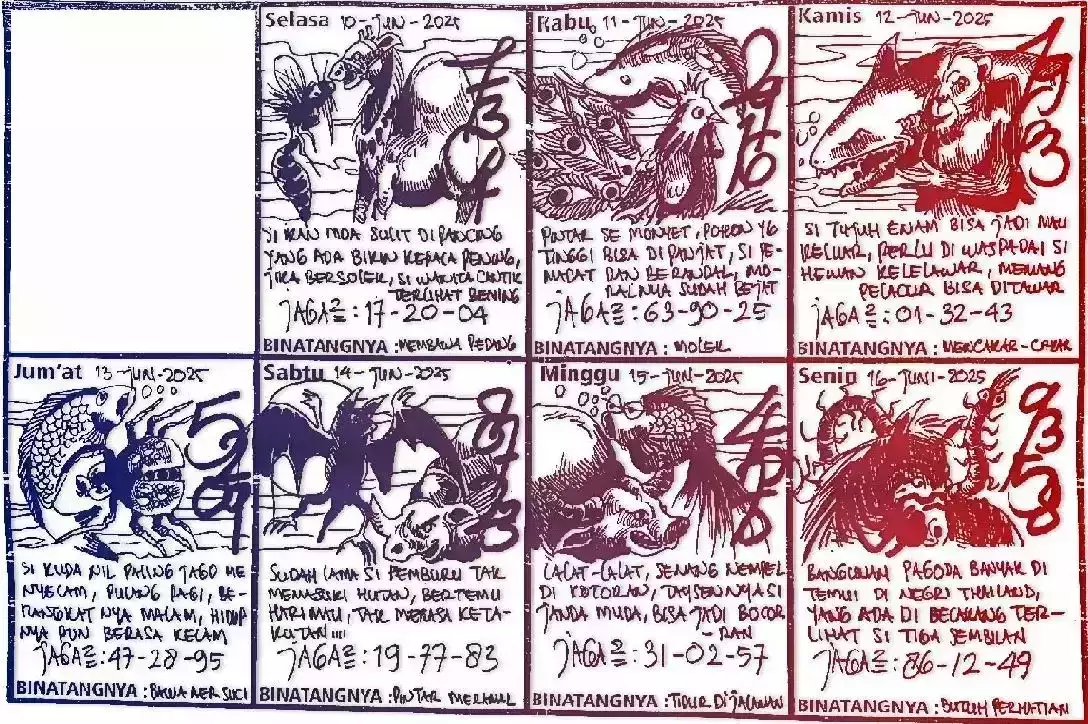 Selasa 10-JUN-2025
SI IKAN MOA SULIT DI PANCING
YANG ADA BIKIN KEPALA PENING,
JIKA BERSOLEK, SI WANITA CANTIK
TERLIHAT BENING
JAGA2=: 17-20-04
BINATANGNYA : MEMBAWA PEDANG
Rabu 11-JUN-2025
PINTAR SE MONYET, POHON YG
TINGGI BISA DI PANJAT, SI PE-
MADAT DAN BERANDAL, MO-
RALNYA SUDAH BEJAT
JAGA2=: 63-90-25
BINATANGNYA : MOLEK
Kamis 12-JUN-2025
SI TUJUH ENAM BISA JADI MAU
KELUAR, PERLU DI WASPADAI SI
HEWAN KELELAWAR, MEMANG
PELACUR BISA DITAWAR
JAGA2=: 01-32-43
BINATANGNYA : MENCAKAR-CAKAR
Jum'at 13-JUN-2025
SI KUDA NIL PALING JAGO ME
NYELAM, PULANG PAGI, BE-
RANGKAT NYA MALAM, HIDUP
NYA PUN BERASA KELAM
JAGA2=: 47-28-95
BINATANGNYA : BAWA AER SUCI
Sabtu 14-JUN-2025
SUDAH LAMA SI PEMBURU TAK
MEMASUKI HUTAN, BERTEMU
HARIMAU, TAK MERASA KETA-
KUTAN !!!!
JAGA2=: 19-77-83
BINATANGNYA : PINTAR MERAMAL
Minggu 15-JUN-2025
LALAT-LALAT, SENANG NEMPEL
DI KOTORAN, SI
JANDA MUDA, BISA JADI BOCOR
-RAN
JAGA2=: 31-02-57
BINATANGNYA : TIDUR DI JALANAN
Senin 16-JUNI-2025
BANGUNAN PAGODA BANYAK DI
TEMUI DI NEGRI THAILAND,
YANG ADA DI BELAKANG TER-
LIHAT SI TIGA SEMBILAN
JAGA2=: 86-12-49
BINATANGNYA : BUTUH PERHATIAN